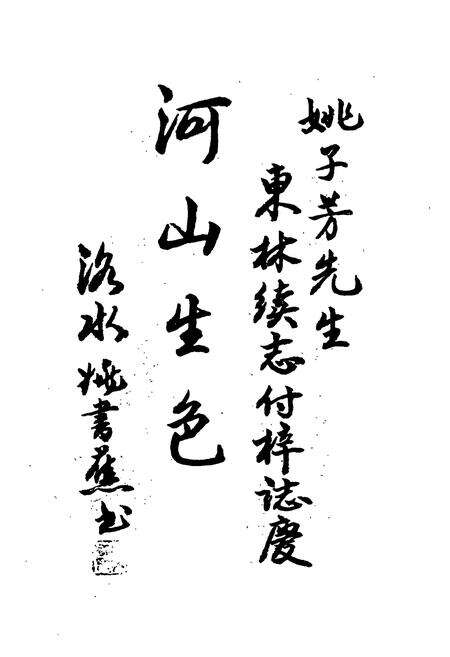 姚子芳先生
東林续志付梓誌慶
河山生色
洛水姚書蕉书